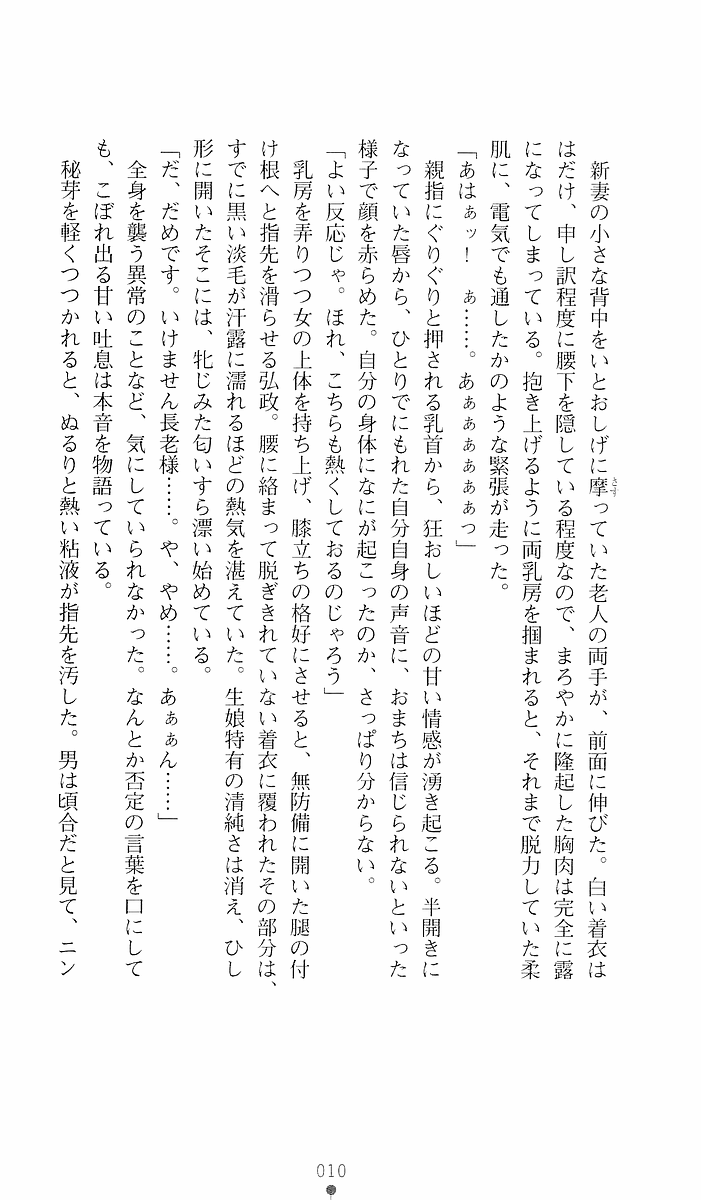 新妻の小さな背中をいとおしげに摩っていた老人の両手が、前面に伸びた。白い着衣は
さす
はだけ、申し訳程度に腰下を隠している程度なので、まろやかに隆起した胸肉は完全に露
になってしまっている。抱き上げるように両乳房を掴まれると、それまで脱力していた柔
肌に、電気でも通したかのような緊張が走った。
「あはぁッ！　ぁ……。あぁぁぁぁぁぁっ」
親指にぐりぐりと押される乳首から、狂おしいほどの甘い情感が湧き起こる。半開きに
なっていた唇から、ひとりでにもれた自分自身の声音に、おまちは信じられないといった
様子で顔を赤らめた。自分の身体になにが起こったのか、さっぱり分からない。
「よい反応じゃ。ほれ、こちらも熱くしておるのじゃろう」
乳房を弄りつつ女の上体を持ち上げ、膝立ちの格好にさせると、無防備に開いた腿の付
け根へと指先を滑らせる弘政。腰に絡まって脱ぎきれていない着衣に覆われたその部分は、
すでに黒い淡毛が汗露に濡れるほどの熱気を湛えていた。生娘特有の清純さは消え、ひし
形に開いたそこには、牝じみた匂いすら漂い始めている。
「だ、だめです。いけません長老様……。や、やめ……。あぁぁん……」
全身を襲う異常のことなど、気にしていられなかった。なんとか否定の言葉を口にして
も、こぼれ出る甘い吐息は本音を物語っている。
秘芽を軽くつつかれると、ぬるりと熱い粘液が指先を汚した。男は頃合だと見て、ニン
010